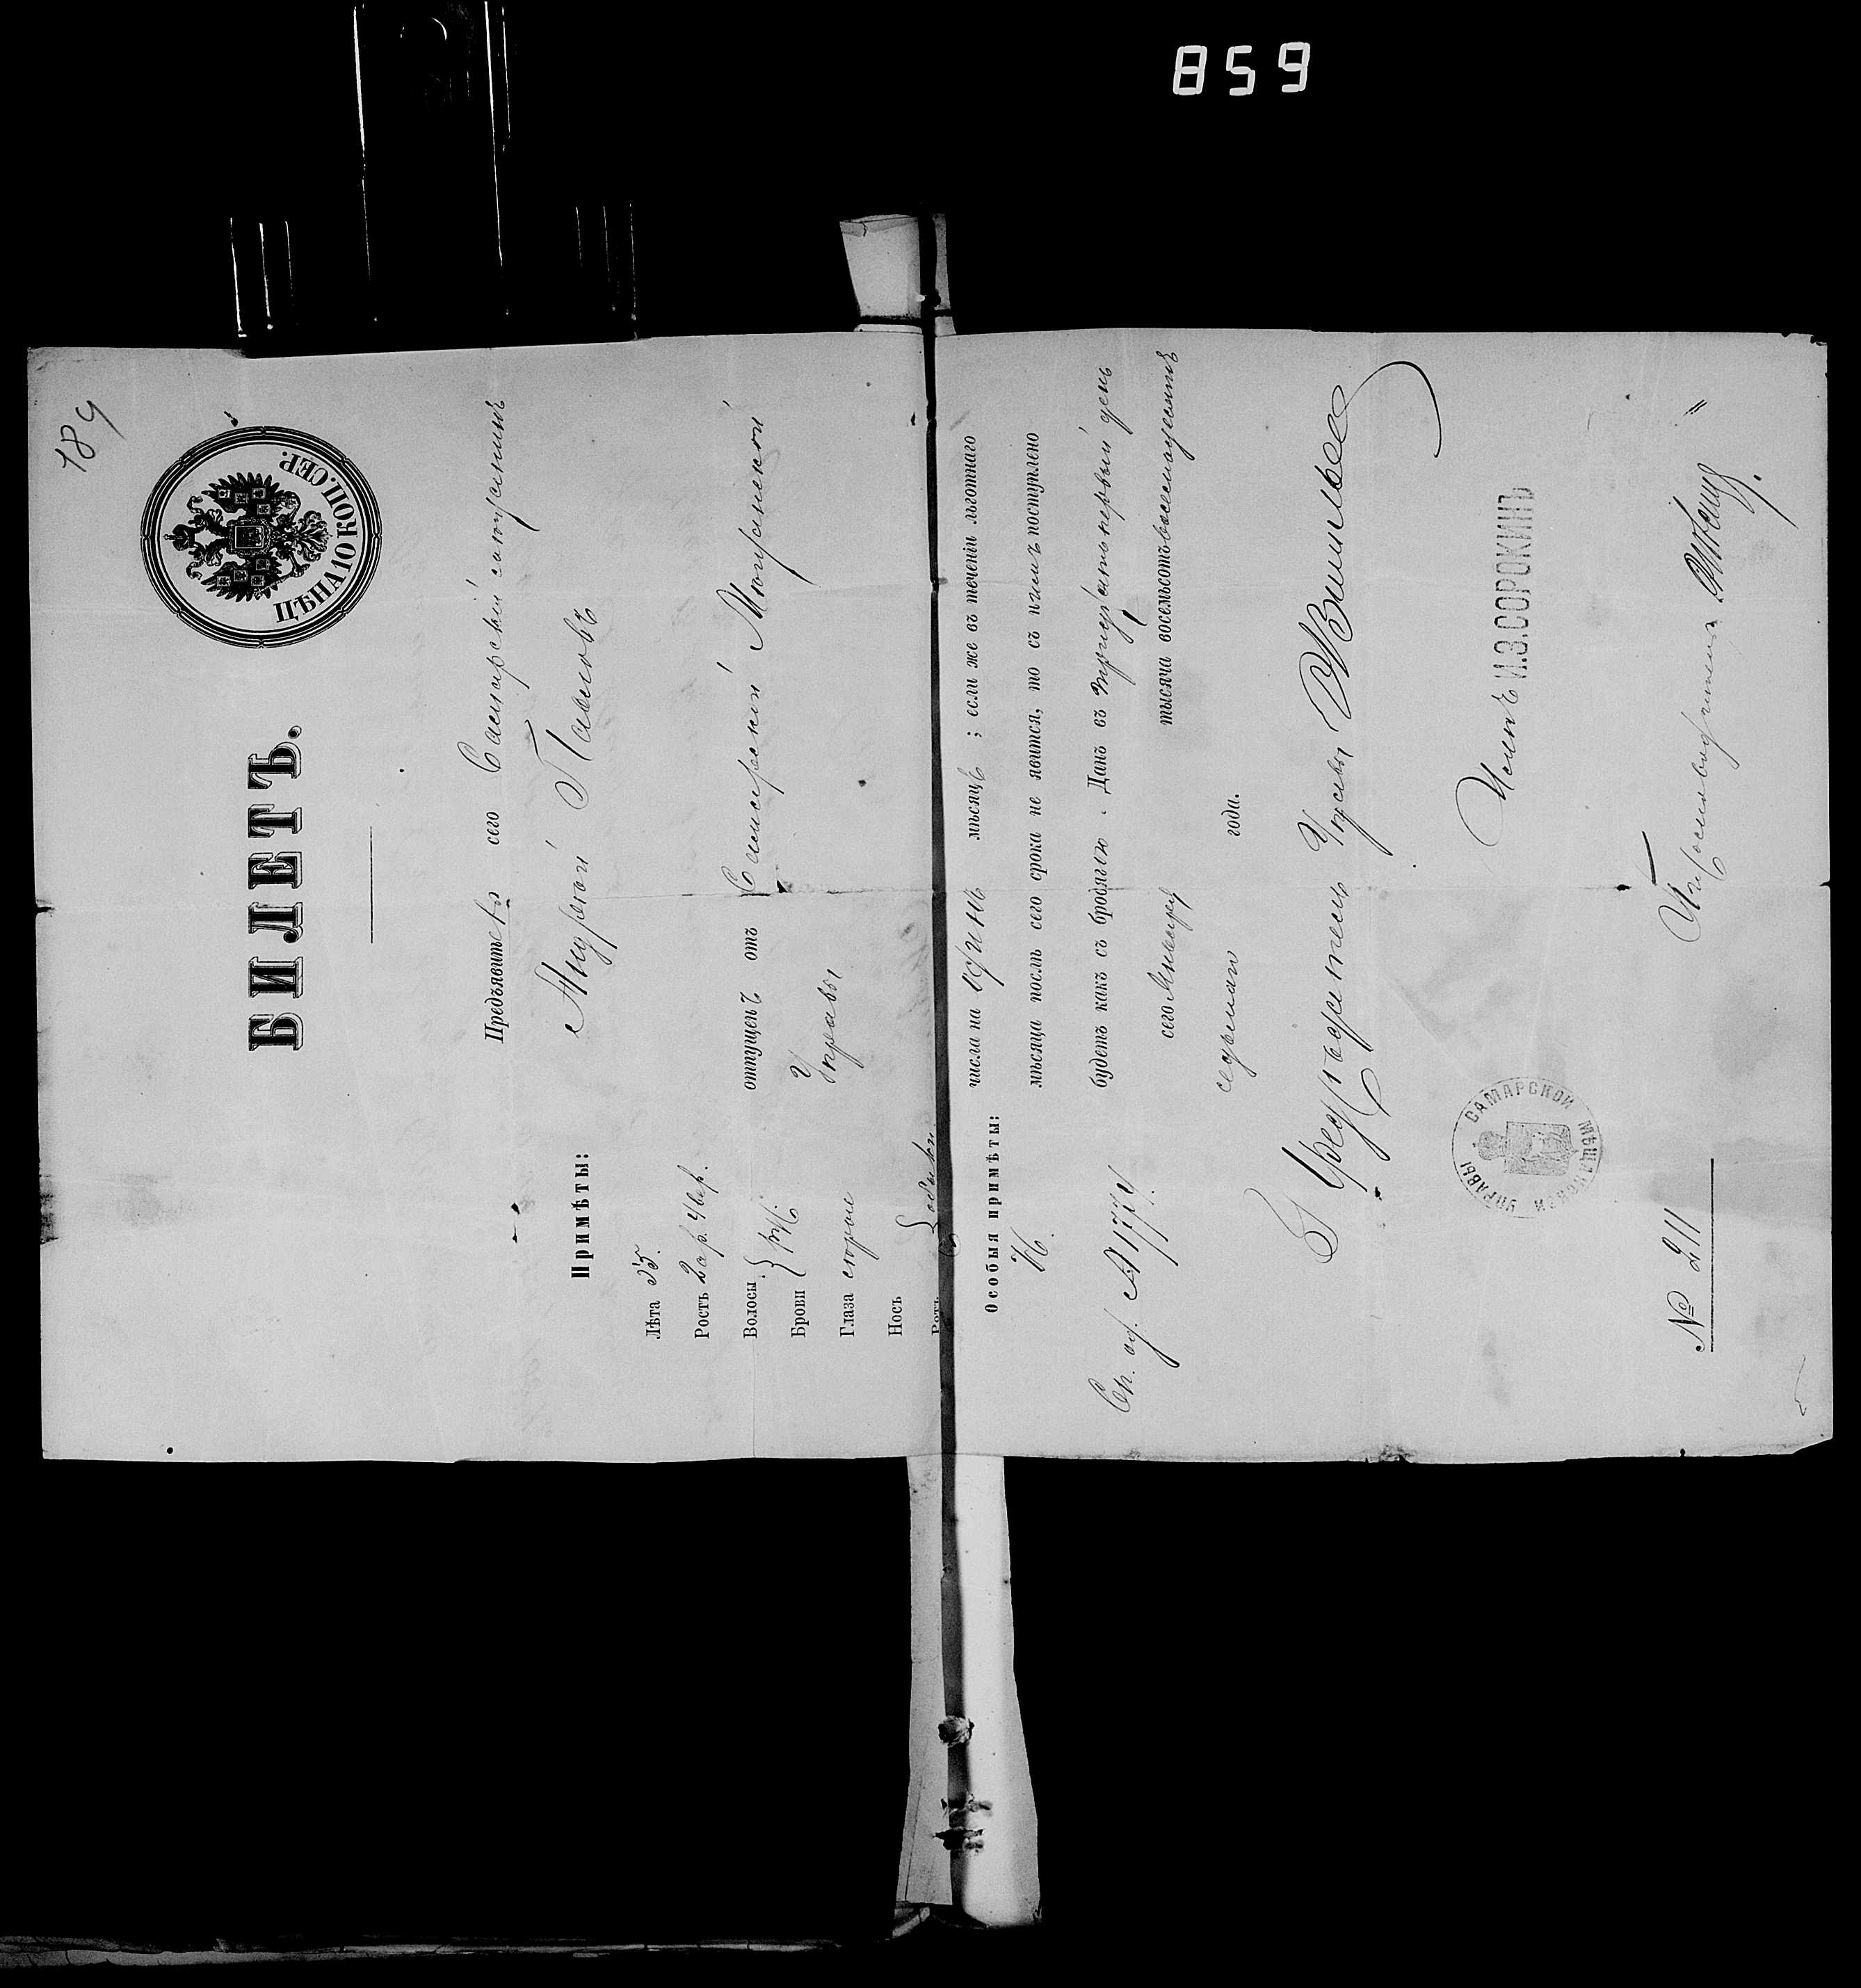 859
189
ЦѢНА 10 КОП. СЕР.
БИЛЕТЪ.
Предъявитель сего Самарскій
Андрей Павловъ
отпущенъ отъ Самарской Мѣщанской
Управы
Примѣты:
Лѣта 35.
Ростъ 2 ар. 4 вер.
Волосы
Брови
Глаза сѣрые
Носъ
Ротъ
Особыя примѣты:
Н.
числа на одинъ мѣсяцъ ; если же въ теченіи льготнаго
мѣсяца послѣ сего срока не явится, то съ нимъ поступлено
будетъ какъ съ бродягою . Данъ въ тридцать первый день
сего Января тысяча восемьсотъ восемьдесятъ
седьмаго года.
Предсѣдатель Управы
Членъ И.З.СОРОКИНЪ
САМАРСКОЙ МѢЩАНСКОЙ УПРАВЫ
Письмоводитель
№ 211